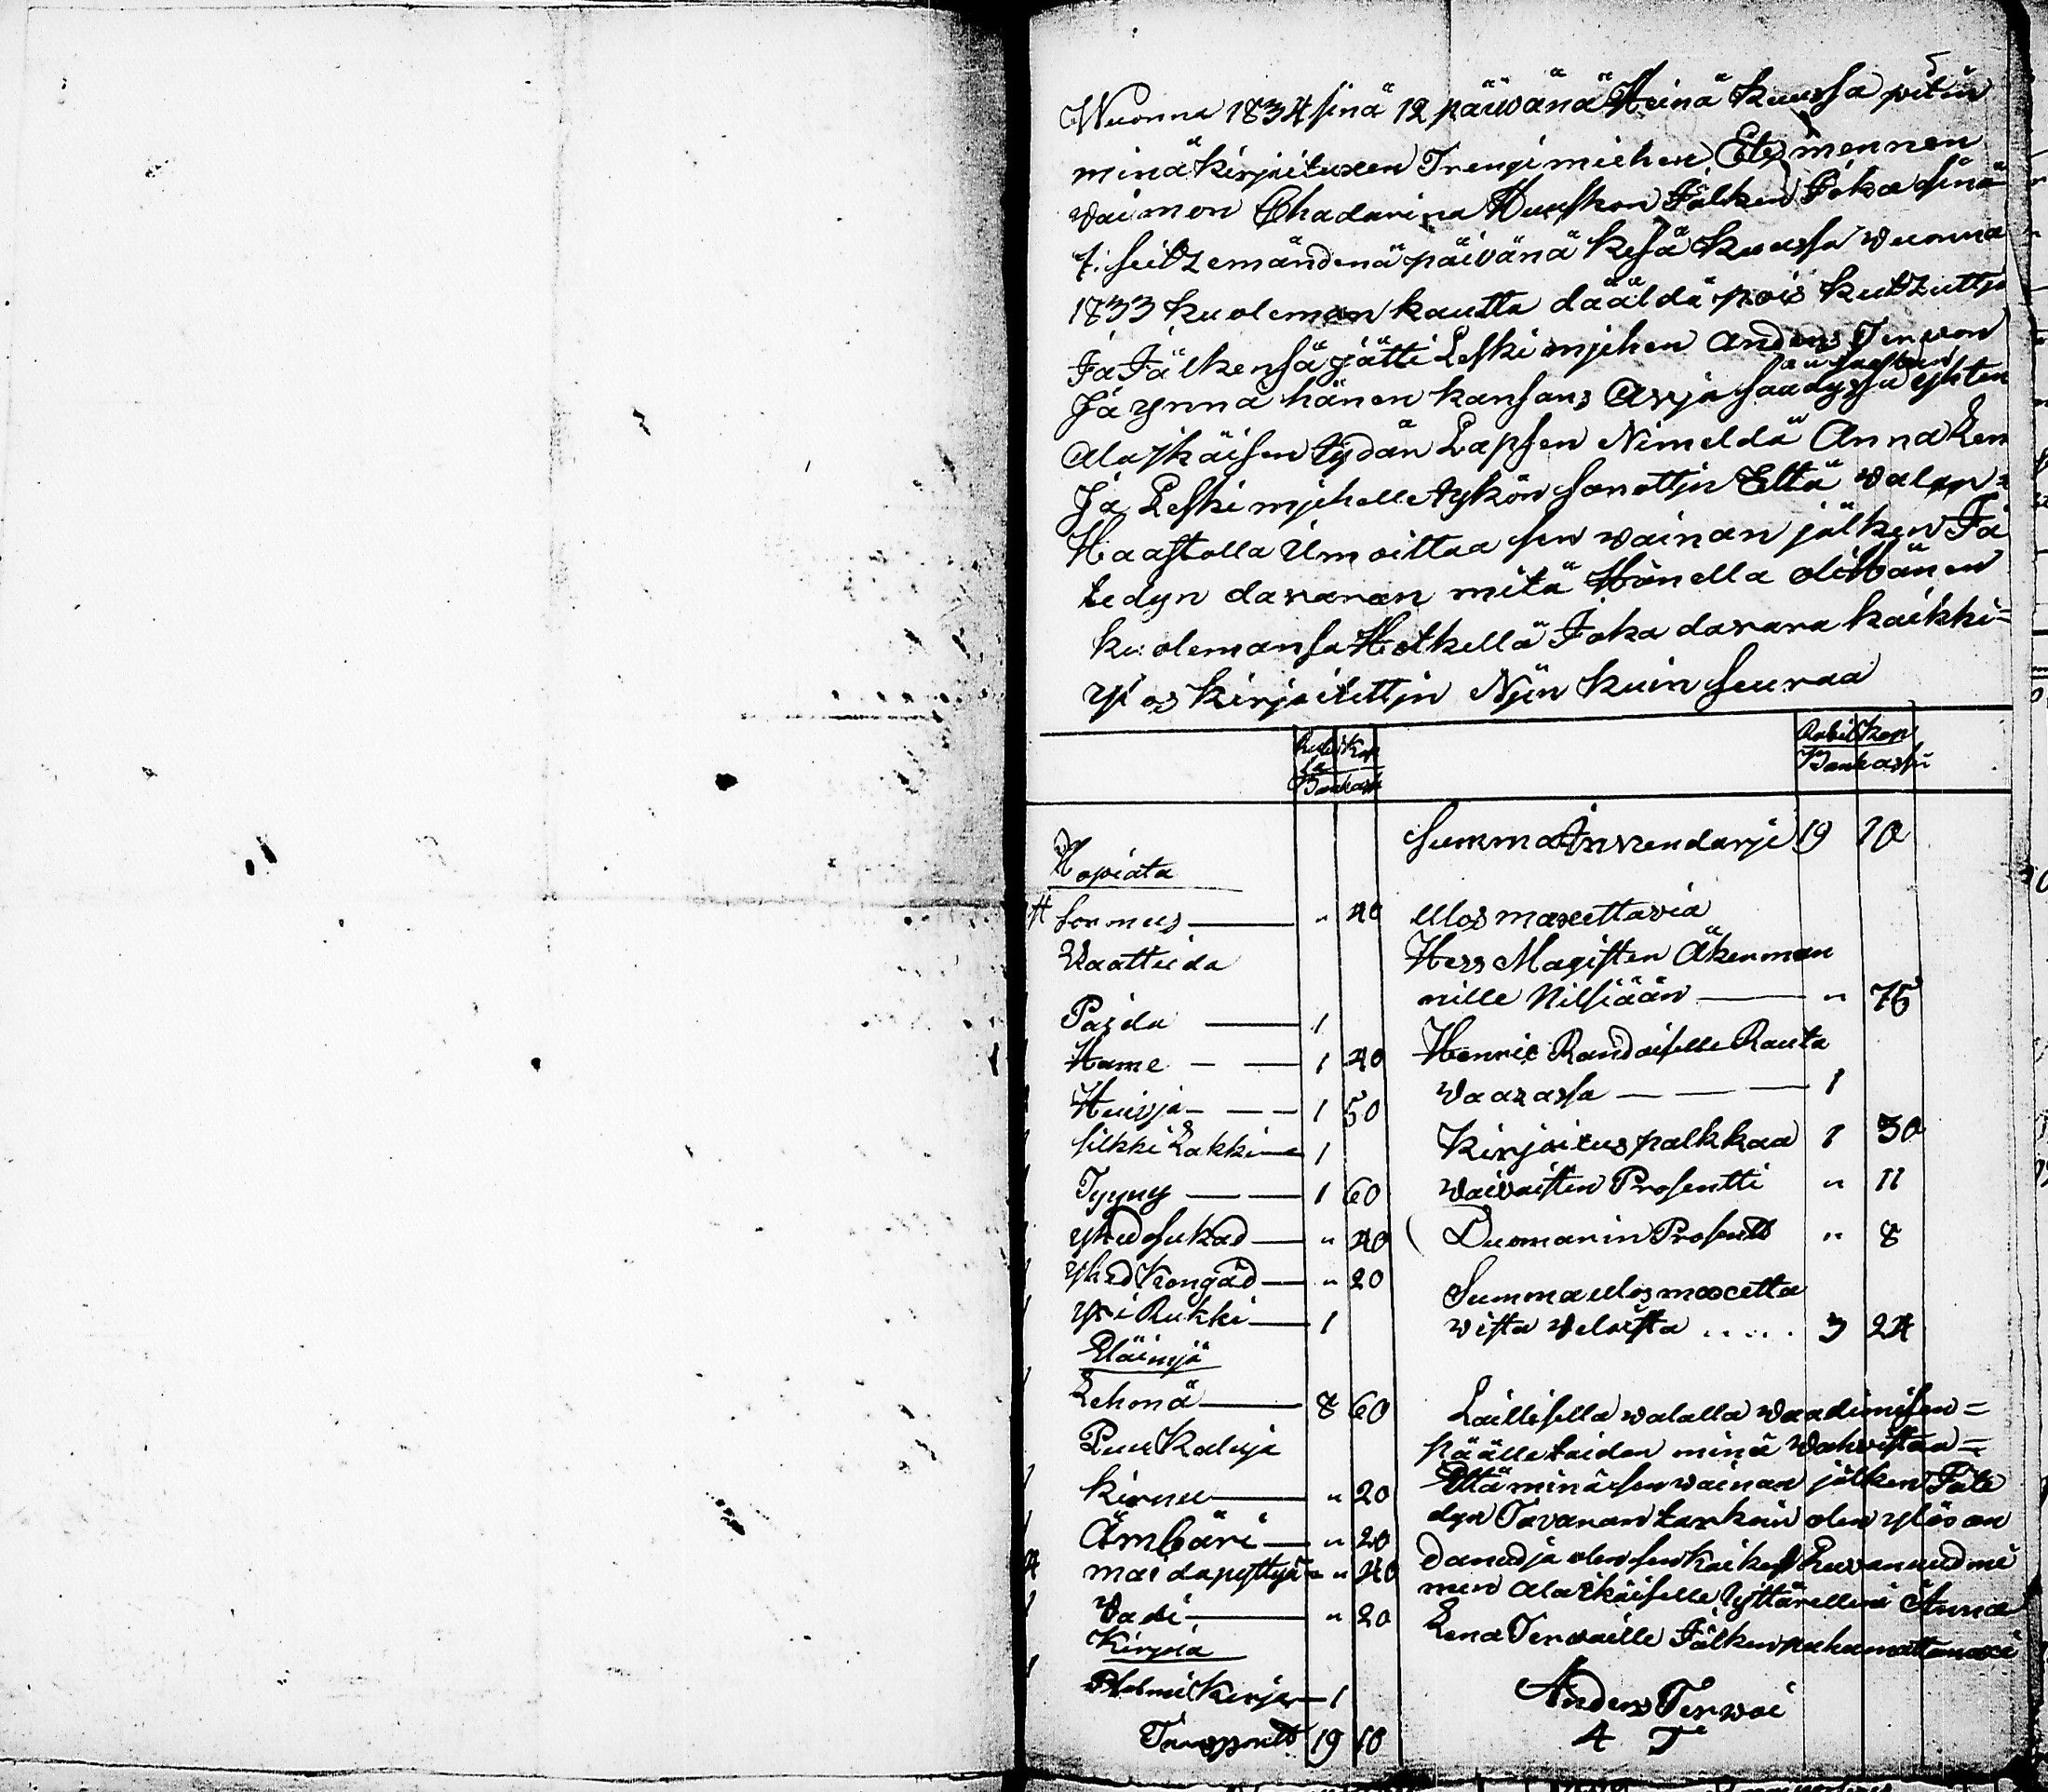 5
Wuonna 1834 sinä 12 päiwänä Heinä kuussa pitin
minä kirjoituxen Trengi miehen Etz mennen
vaimon Chadarina Huuskon Jälken Joka sinä
7: seitzemändenä päivänä kesä kuussa wuonna
1833 kuoleman kautta dääldä pois kutzuttu
Ja Jälkensä jätti Leski mjehen Anders Terwon
Ja ynnä hänen kansans Avjo säädyssä yhten
alaikäisen tydän Lapsen Nimeldä Anna Len
Ja Leski mjehelle tykön sanottjn Että walan=
Haastolla Ilmoittaa sen wainan jälken Jä
tedyn davaran mitä Hänella oli hänen
kuolemansa Hetkellä Joka davara kaikki=
ylös kirjoitettjn Njin kuin seuraa
Rubla Kop
Bankossa
Hopiata
Sormus " 40
Vaatteida
Paida 1
Hame 1 40
Huivja 1 50
silkki Lakki 1
Tyyny 1 60
yhed sukad " 40
yhed Kengäd " 20
yxi Rukki 1
Eläimjä
Lehmä 8 60
Puu Kaluja
kirnu " 20
Ämbäri " 20
maidapyttyjä " 40
Vadi " 20
Kirjoja
Kirja 1
Transportt 19 10
Rubl Kop
Bankossa
Summa Invendarje 19 10
Ulos maxettavia
Herr Magisten Åkerman
nille Nilsiään " 75
Henric Randaiselle Rauta
vaarassa 1
Kirjoitus palkkaa 1 30
Vaivaisten Prosentti " 11
Duomarin Prosentt " 8
Summa ulos maxetta
vista veloista ..... 3 24
Laillisella walalla waadimisen=
päälle taidan minä wahvistaa=
Että minä sen wainan jälken Jäte
dyn Tavaran tarkoin olen ylös an
danud ja olen sen kaiken Luvannud mi
nun alaikäiselle Tyttärelleni Anna
Lena Tervoille Jälken
Anders Terwoi
A T